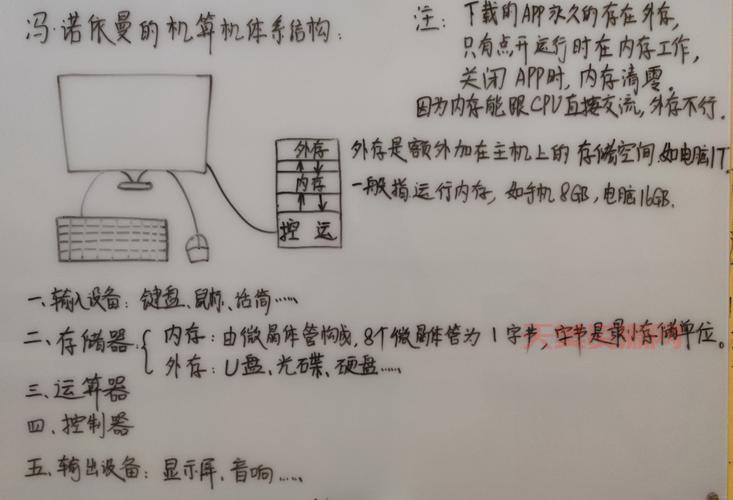 冯·诺依曼的机算机体系结构：
注：下载的APP永久的存在外存，
只有点开运行时在内存工作，
关闭APP时，内存清零。
因为内存能跟CPU直接交流，外存不行。
外存
内存
控 运
外存是额外加在主机上的存储空间.如电脑1T.
一般指运行内存，如手机8GB，电脑16GB.
一、输入设备：键盘、鼠标、话筒……
二、存储器
内存：由微晶体管构成，8个微晶体管为1字节，字节是最小存储单位。
外存：U盘、光碟、硬盘……
三、运算器
四、控制器
五、输出设备：显示屏、音响……